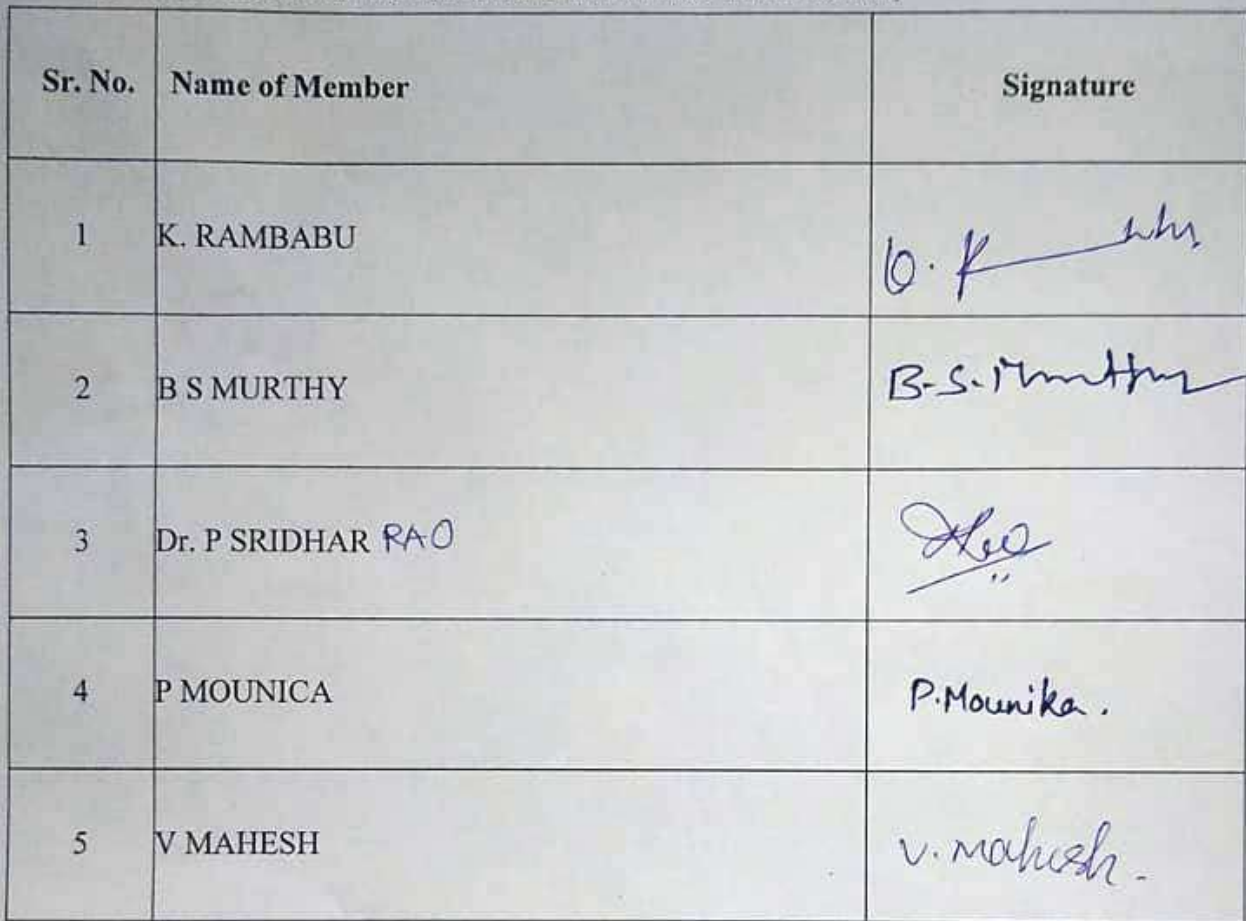 Sr. No. Name of Member Signature
1 K. RAMBABU
2 B S MURTHY B-S. Murthy
3 Dr. P SRIDHAR RAO
4 P MOUNICA P.Mounika.
5 V MAHESH V. mahesh.